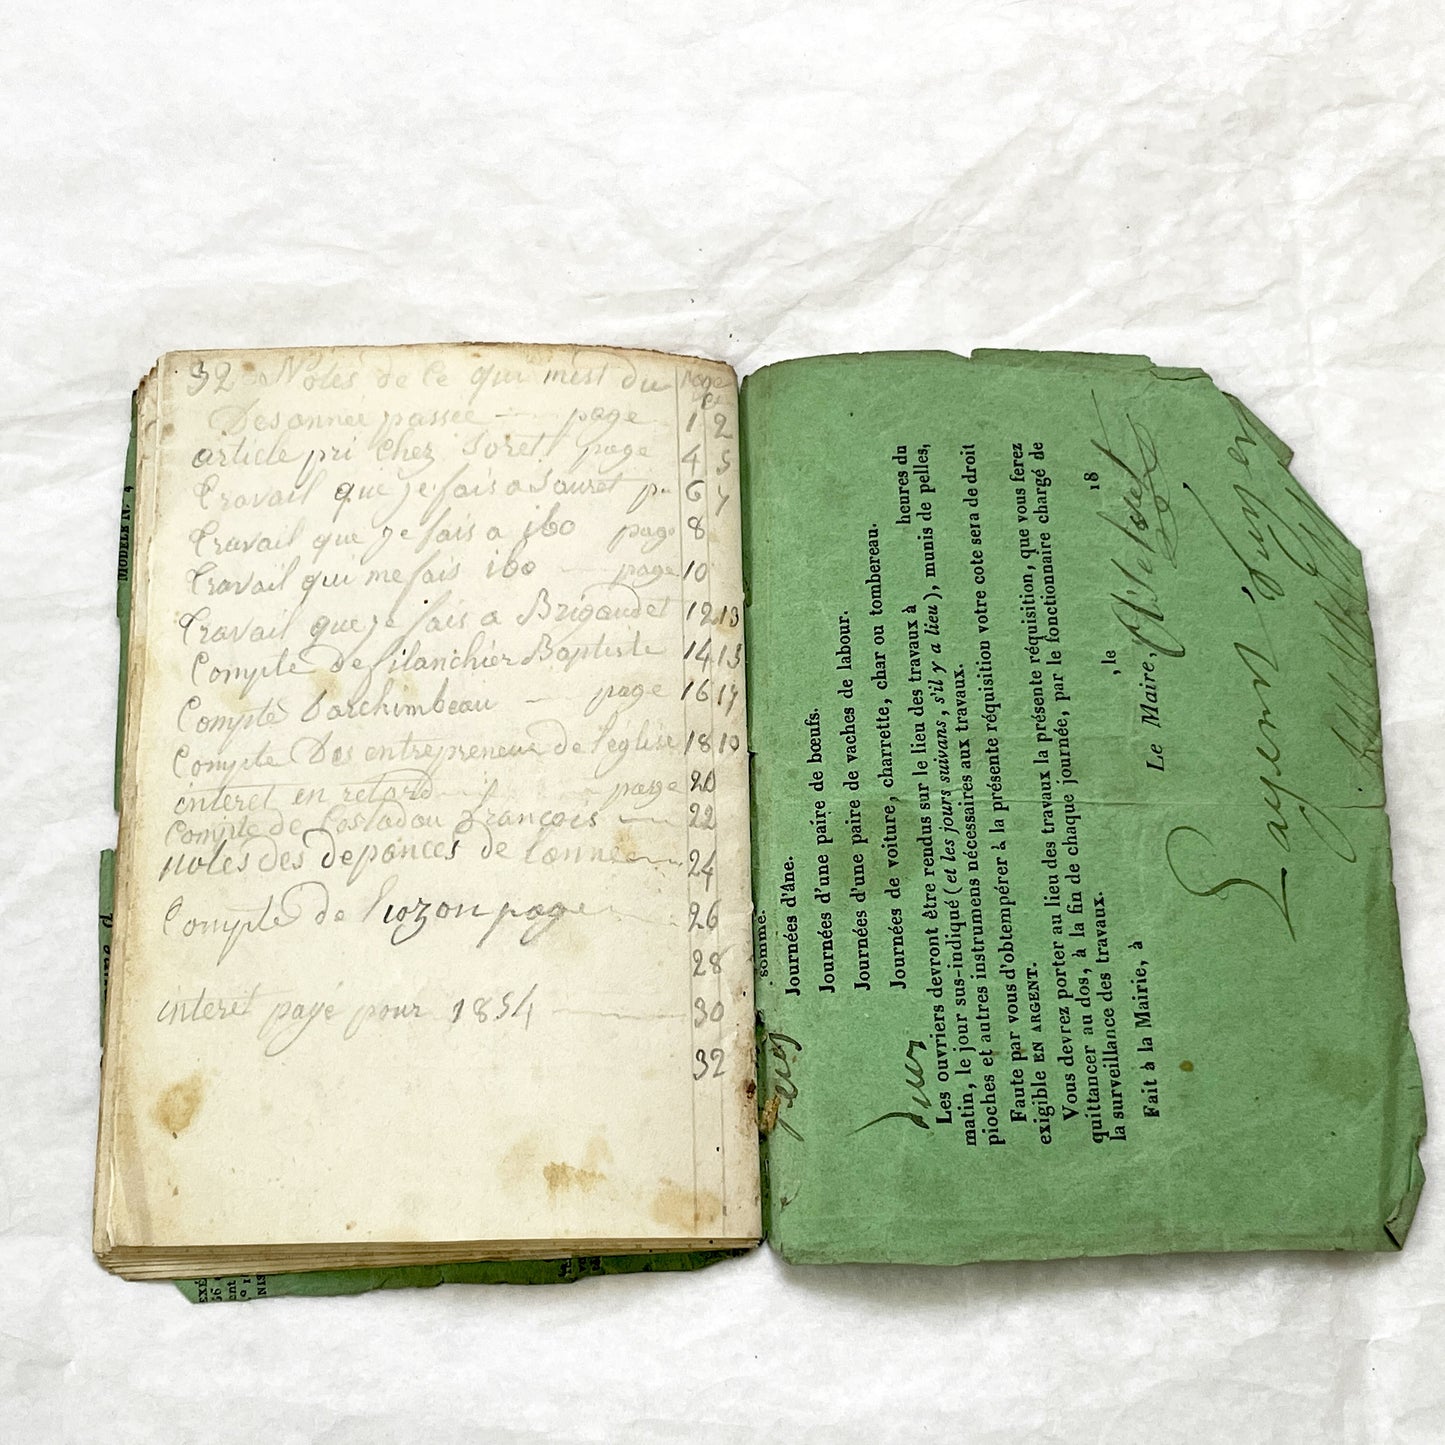 32 Notes de ce qui mest du page
Des année passée page 1 2
article pri chez Soret page 4 5
travail que je fais a Sauret p.. 6 7
travail que je fais a ibo page 8
travail qui me fais ibo page 10
travail que je fais a Brigaudet 12 13
Compte de filanchier Baptiste 14 15
Compte darchimbeau page 16 17
Compte Des entrepreneur de léglise 18 19
interet en retard page 20
Compte de Costadau françois 22
notes des depances de lannée 24
Compte de page 26
28
interet payé pour 1854 30
32
MODÈLE N. 4
somme.
Journées d'âne.
Journées d'une paire de bœufs.
Journées d'une paire de vaches de labour.
Journées de voiture, charrette, char ou tombereau.
Les ouvriers devront être rendus sur le lieu des travaux à heures du
matin, le jour sus-indiqué (et les jours suivans, s'il y a lieu), munis de pelles,
pioches et autres instrumens nécessaires aux travaux.
Faute par vous d'obtempérer à la présente réquisition votre cote sera de droit
exigible EN ARGENT.
Vous devrez porter au lieu des travaux la présente réquisition, que vous ferez
quittancer au dos, à la fin de chaque journée, par le fonctionnaire chargé de
la surveillance des travaux.
Fait à la Mairie, à , le 18
Le Maire,